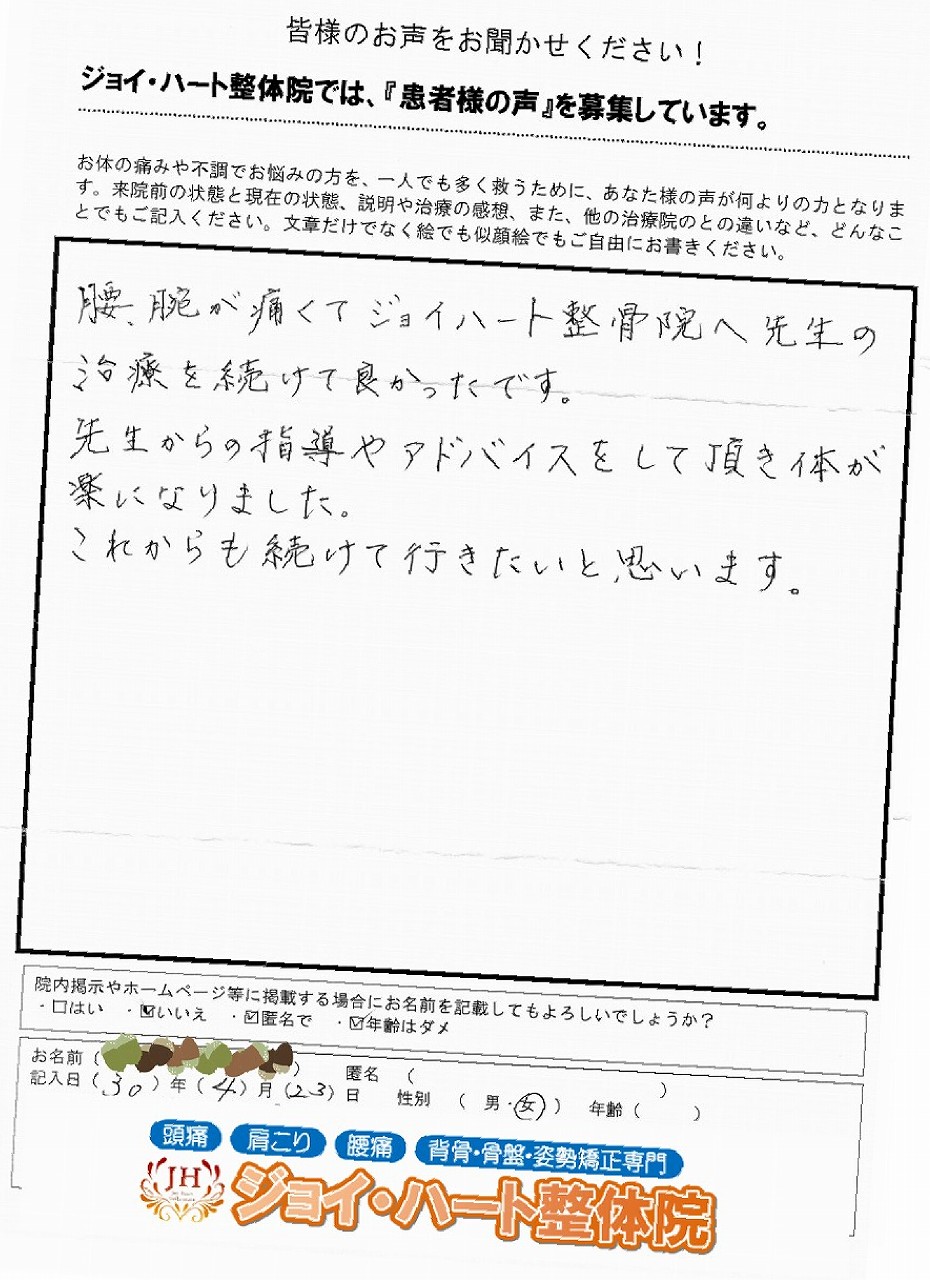 皆様のお声をお聞かせください！
ジョイ・ハート整体院では、『患者様の声』を募集しています。
お体の痛みや不調でお悩みの方を、一人でも多く救うために、あなた様の声が何よりの力となりま
す。来院前の状態と現在の状態、説明や治療の感想、また、他の治療院のとの違いなど、どんなこ
とでもご記入ください。文章だけでなく絵でも似顔絵でもご自由にお書きください。
腰、腕が痛くてジョイハート整骨院へ先生の
治療を続けて良かったです。
先生からの指導やアドバイスをして頂き体が
楽になりました。
これからも続けて行きたいと思います。
院内掲示やホームページ等に掲載する場合にお名前を記載してもよろしいでしょうか？
・□はい ・☑いいえ ・☑匿名で ・☑年齢はダメ
お名前（ ） 匿名（ ）
記入日（30）年（4）月（23）日 性別（ 男・女 ） 年齢（ ）
頭痛 肩こり 腰痛 背骨・骨盤・姿勢矯正専門
JH ジョイ・ハート整体院